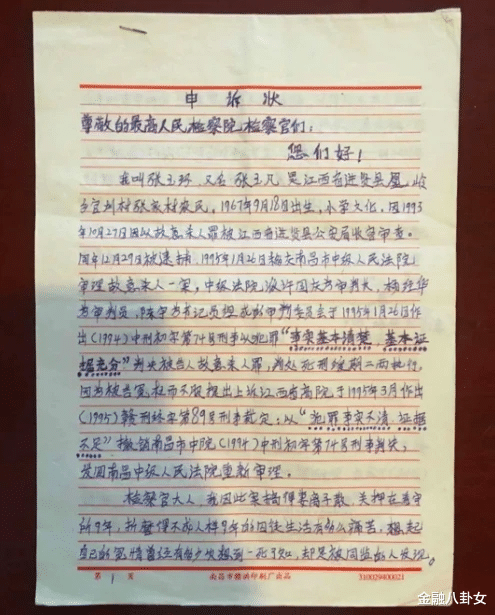 申诉状
尊敬的最高人民检察院检察官们:
您们好!
我叫张玉环 又名 张玉凡 是江西省进贤县凰岭
乡官圳村张家村农民, 1967年9月18日出生, 小学文化, 因1993
年10月27日因以故意杀人罪被江西省进贤县公安局收容审查。
同年12月29日被逮捕, 1995年1月26日南昌市中级人民法院
审理故意杀人一案, 中级法院 为审判长, 杨经华
为审判员, 书记员组成 审判委员会于1995年1月26日作
出(1994)中刑初字第74号刑事以犯罪“事实基本清楚, 基本证
据充分”判决被告人故意杀人罪, 判处死刑缓期二年执行,
因为被告冤枉而不服提出上诉江西省高院于1995年3月作出
(1995)赣刑终字第89号刑事裁定: 以“犯罪事实不清 证据
不足”撤销南昌市中院(1994)中刑初字第74号刑事判决,
发回南昌中级人民法院重新审理。
检察官大人, 我因此案搞得妻离子散, 关押在看守
所9年, 折磨得不成人样9年的囚徒生活有多么痛苦, 想起
自己的冤情曾经有多少次想到一死了知, 却是被同监的人发现。
第 1 页
南昌市 印刷厂出品
310029400021
金融八卦女